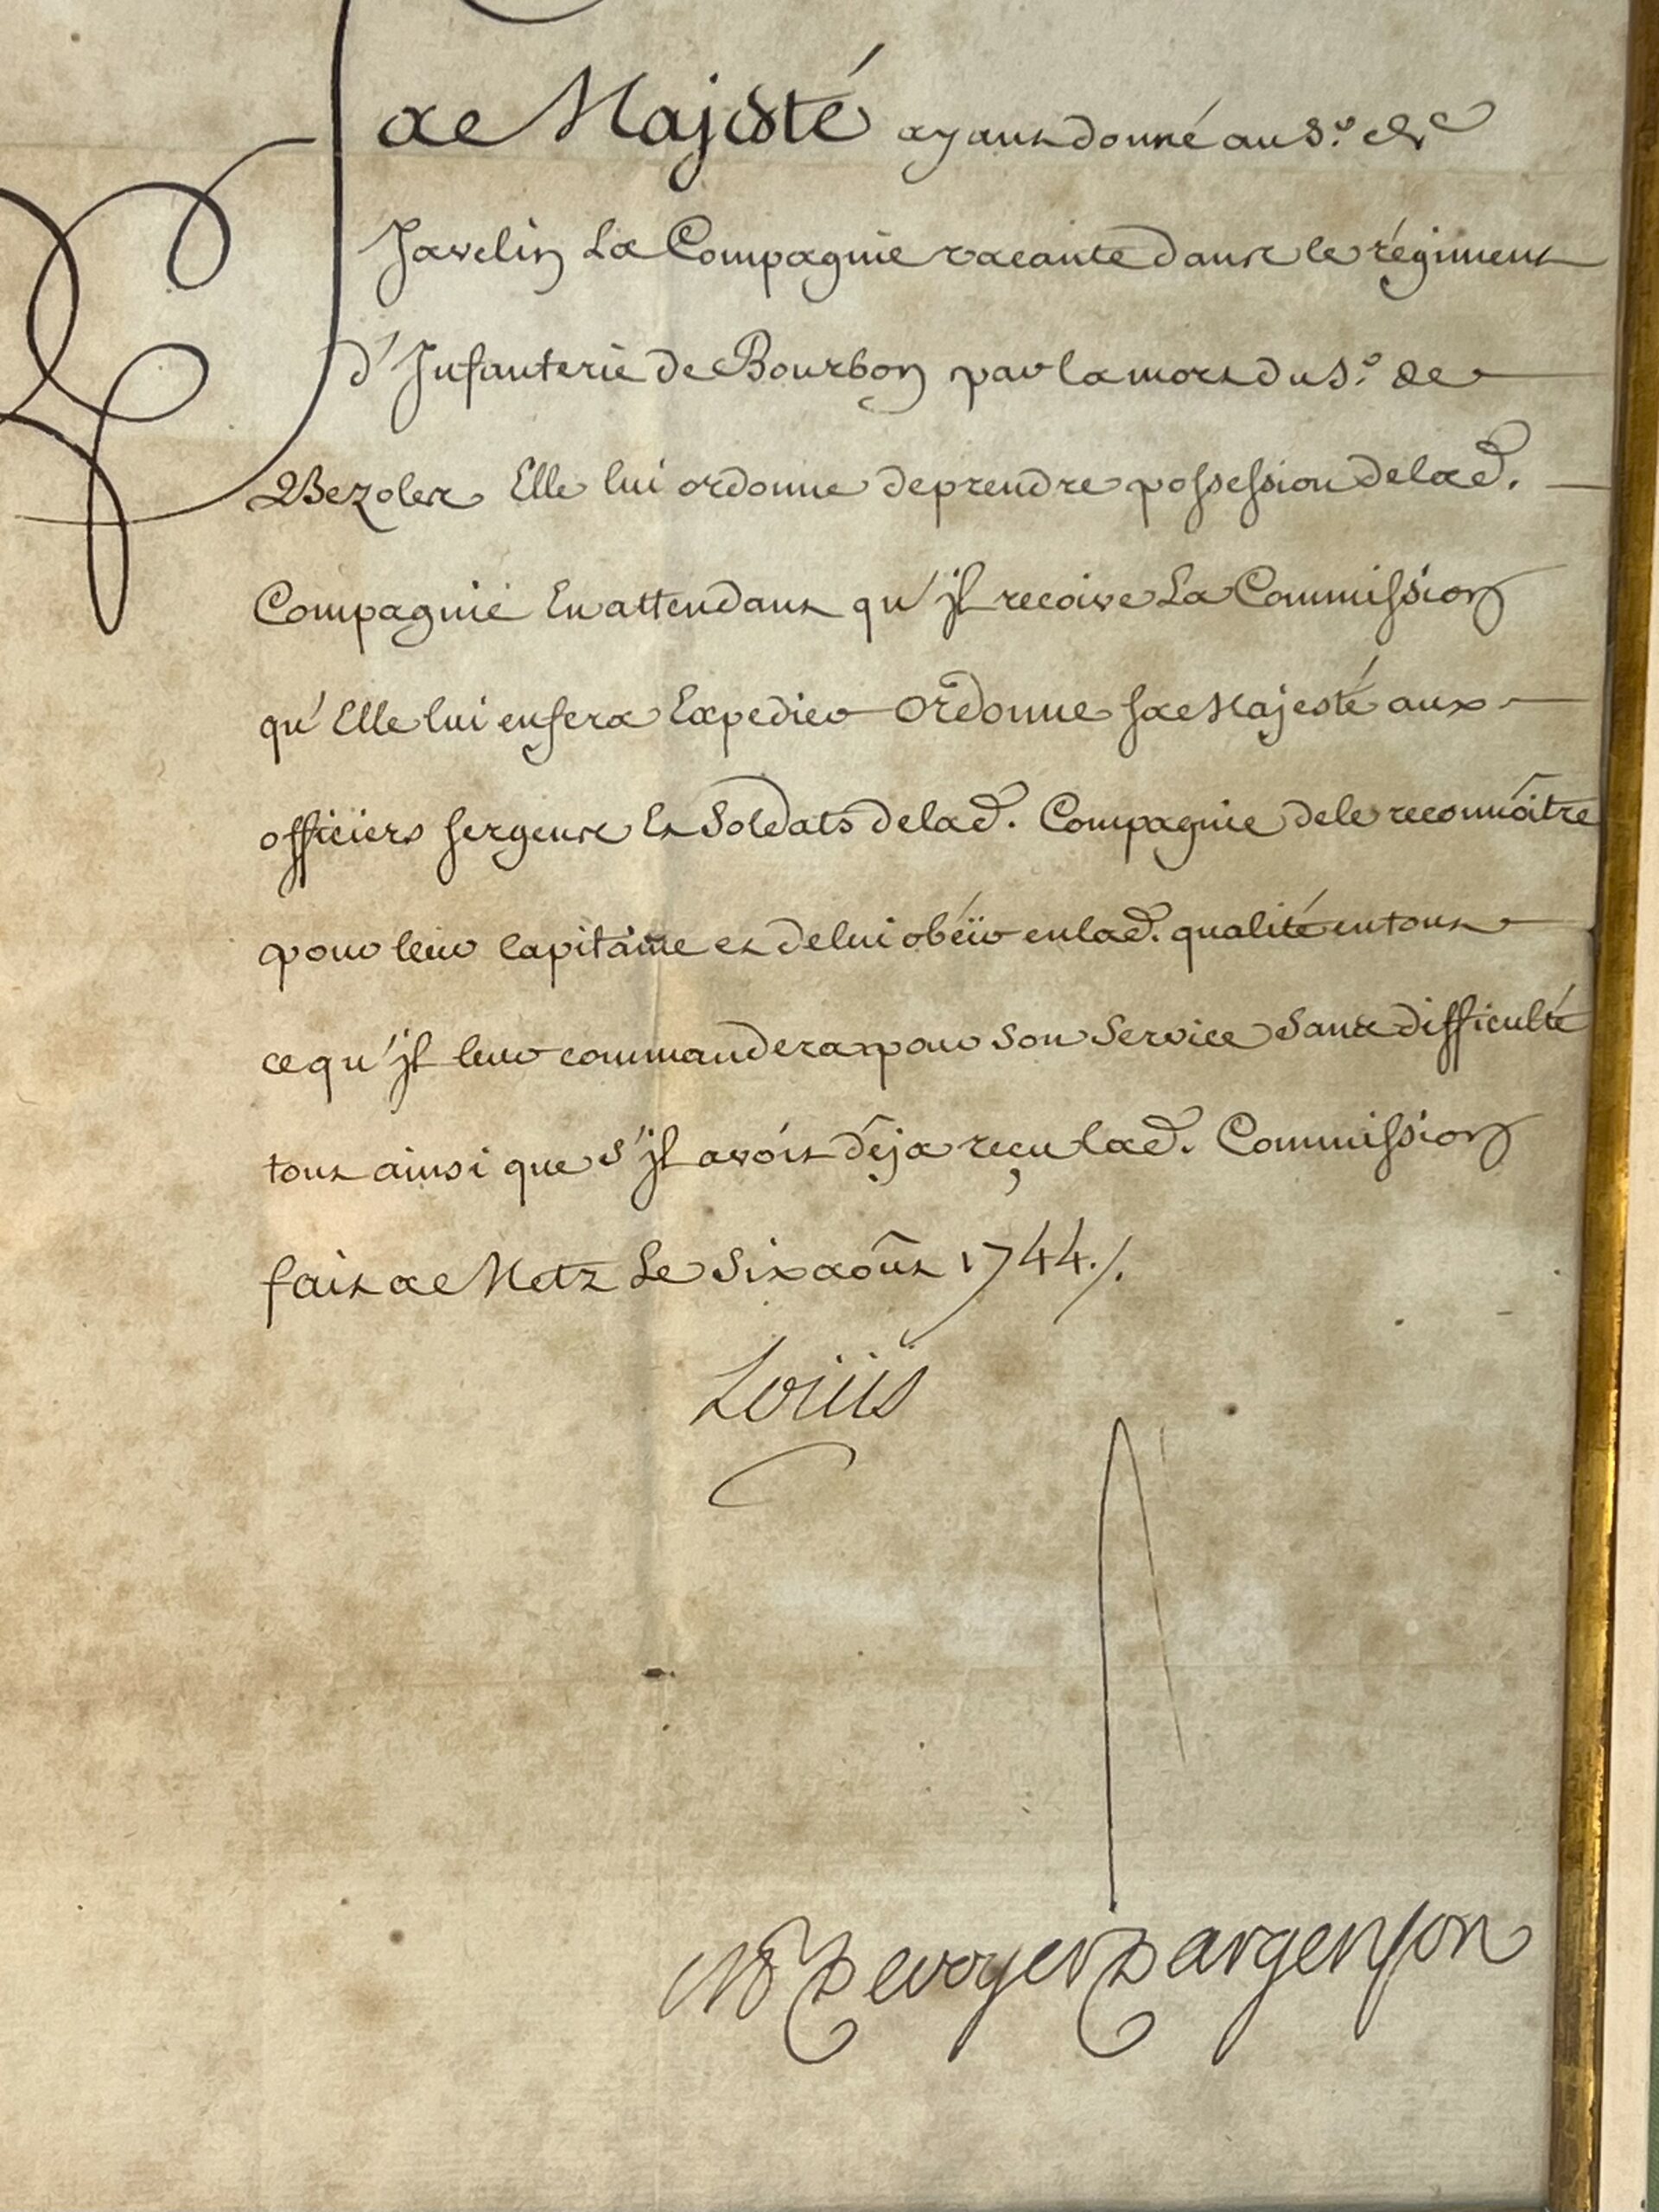 Sa Majesté ayant donné au S.r de
Javelin La Compagnie vacante dans le régiment
d'Infanterie de Bourbon par la mort du S.r de
Bezoles Elle lui ordonne de prendre possession de lad.
Compagnie En attendant qu'jl recoive La Commission
qu'Elle lui en fera Expedier Ordonne sa Majesté aux
officiers sergens Et Soldats de lad. Compagnie de le reconnoître
pour leur Capitaine et de lui obéïr en lad. qualité en tout
ce qu'jl leur commandera pour Son Service Sans difficulté
tout ainsi que s'jl avoit déja reçu lad. Commission
fait a Metz Le Six août 1744./.
Louis
M P de voyer D argenson